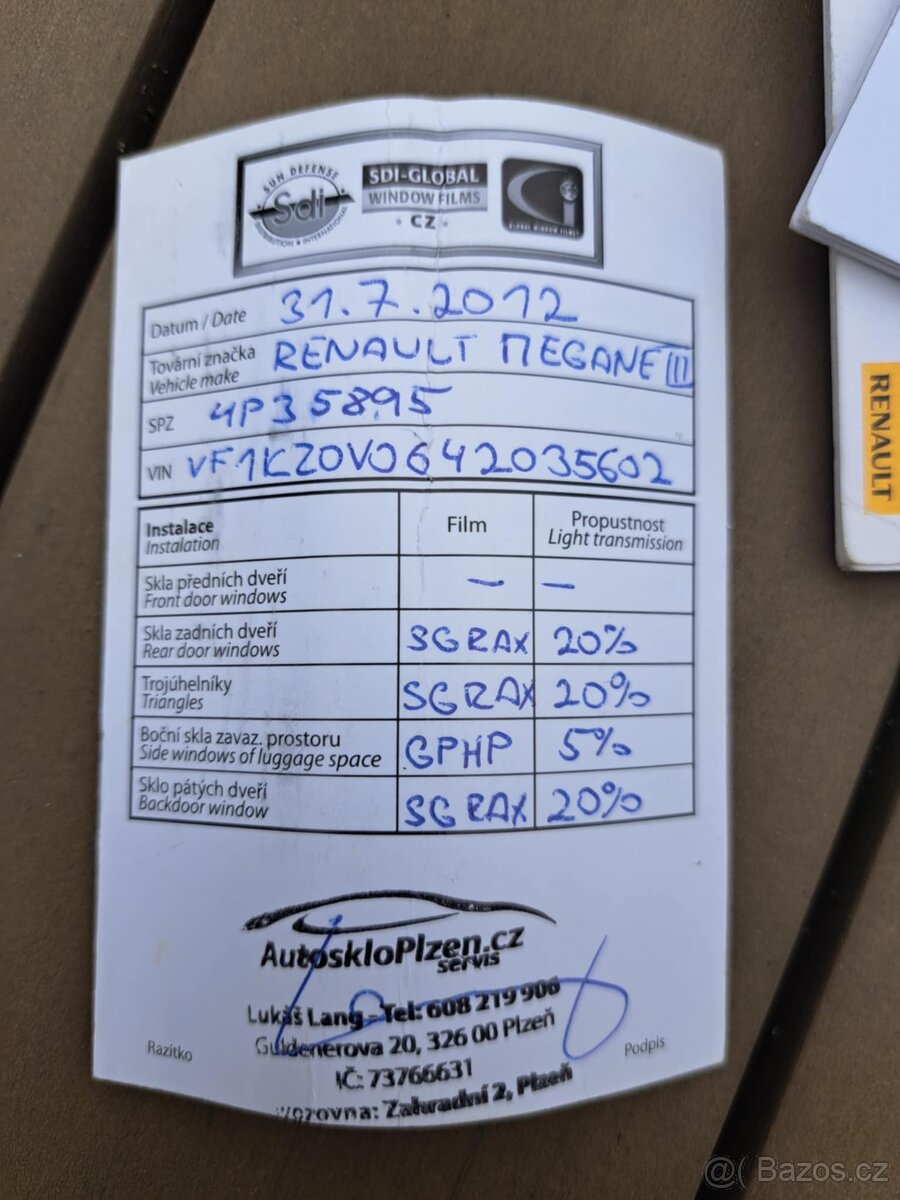 SUN DEFENSE
Sdi
DISTRIBUTION ★ INTERNATIONAL
SDI-GLOBAL
WINDOW FILMS
· CZ ·
GLOBAL WINDOW FILMS
Datum / Date 31.7.2012
Tovární značka
Vehicle make RENAULT MEGANE III
SPZ 4P35895
VIN VF1KZ0V0642035602
Instalace
Instalation
Film
Propustnost
Light transmission
Skla předních dveří
Front door windows
– –
Skla zadních dveří
Rear door windows
SGRAX 20%
Trojúhelníky
Triangles
SGRAX 20%
Boční skla zavaz. prostoru
Side windows of luggage space
GPHP 5%
Sklo pátých dveří
Backdoor window
SGRAX 20%
AutoskloPlzen.cz
servis
Lukáš Lang - Tel: 608 219 906
Guldenerova 20, 326 00 Plzeň
IČ: 73766631
Provozovna: Zahradní 2, Plzeň
Razítko
Podpis
RENAULT
@( Bazos.cz